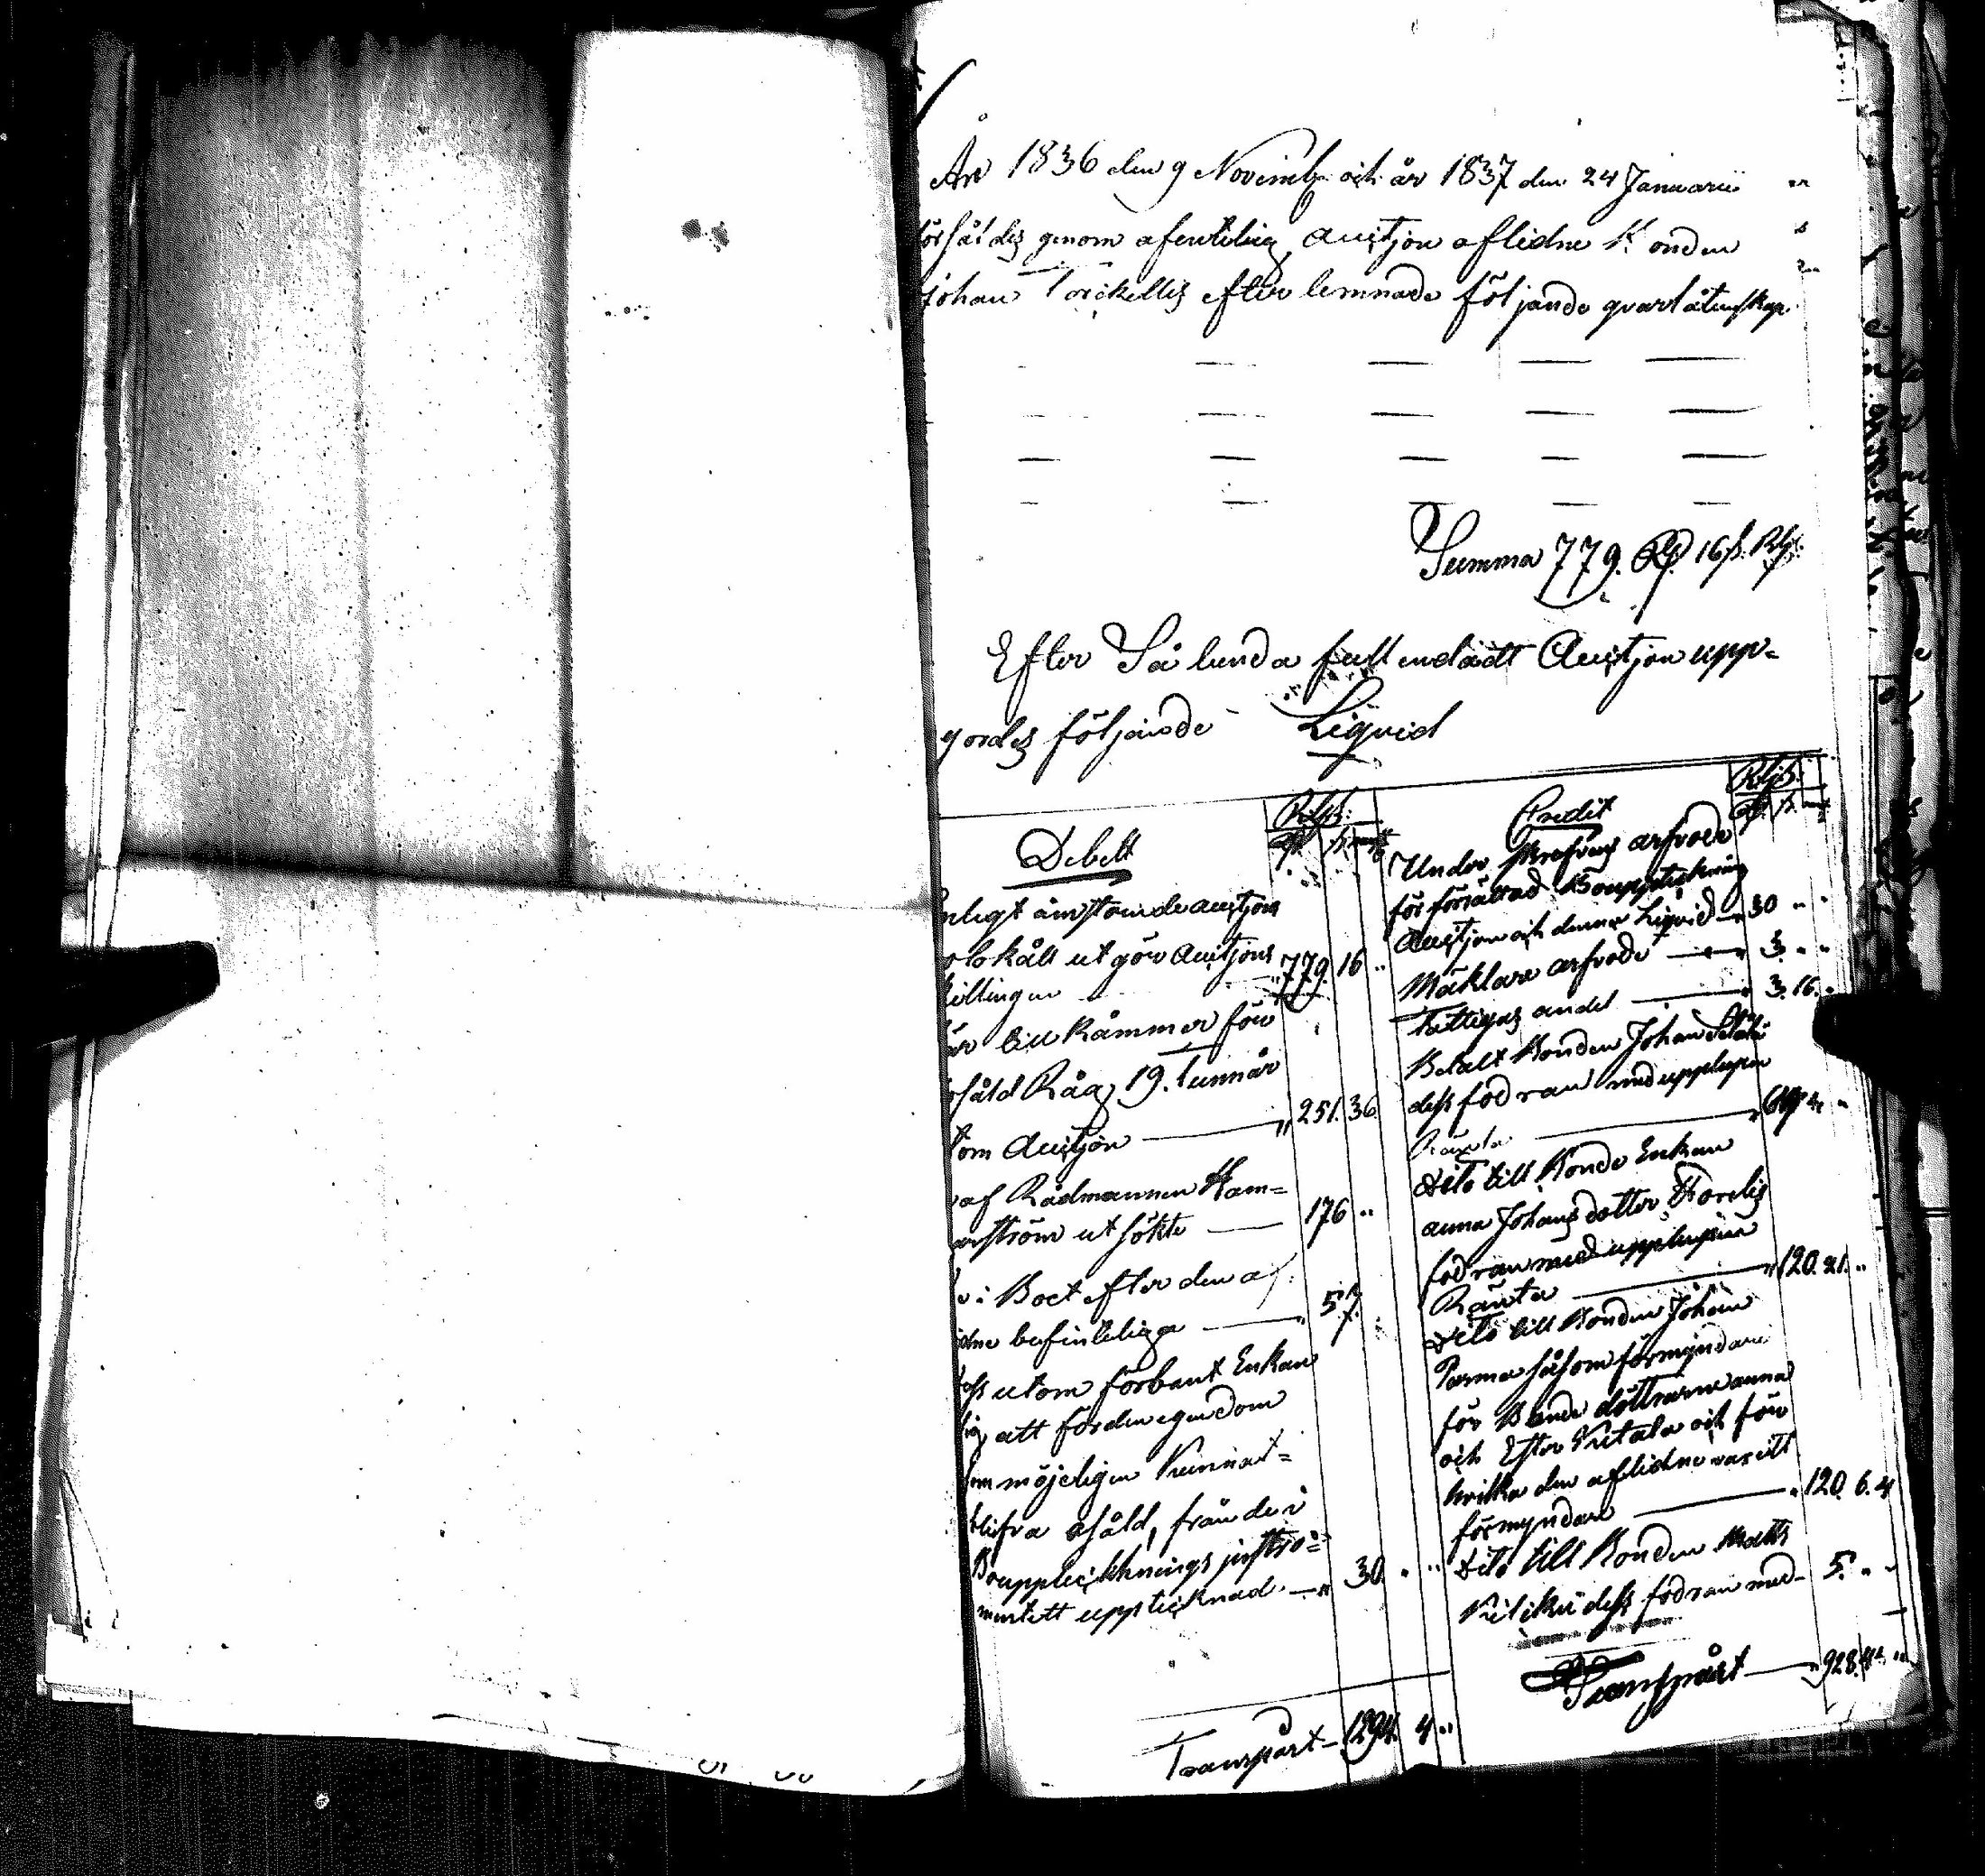 År 1836 den 9 Novemb och år 1837 den 24 Januarii
försåldes genom afentelieg auctjon aflidne Bonden
Johan Torckellis efter lemnade följande qvarlåtenskap
Summa 779. Rd 16 s. Rgs.
Efter Så lunda full endadt Auctjon upp-
gordes följande Liqvid
Debett
enligt ånstående auctjons
tokåll ut gör Auctjons
killingen 779. 16 ..
till kåmmer för
såld Råg 19. Tunnår
om Auctjon 251. 36.
af Rådmannen Ham=
ström ut sökte 176 ..
i Boet efter den af
befinteliga 57.
utom förbant Enkan
att för den egendom
möjeligen kunnat=
blifva osåld, från de i
Boupptecknings jnstru=
mentett upptecknad 30. . ..
Transpårt 1294. 4 ..
Credit
Under skrefvens arfvode
för förrättad Bouppteckning
Auctjon och denna Liqvid 30 .. .
Mäklare arfvode 3. . ..
Fattigas andel 3. 16. .
Betalt Bonden Johan
dess fodran med upplupen
Ränta
Dito till Bonde Enkan
anna Johans dotter
fodran med upplupen
Ränta 120. 21. ..
Dito till Bonden Johan
Parma såsom förmyndare
för Bonde döttrarne anna
och Ester Kutala och för
hvilka den aflidne varitt
förmyndare 120. 6. 4
Dito till Bonden Matts
dess fodran med 5. . .
Transpårt 928.